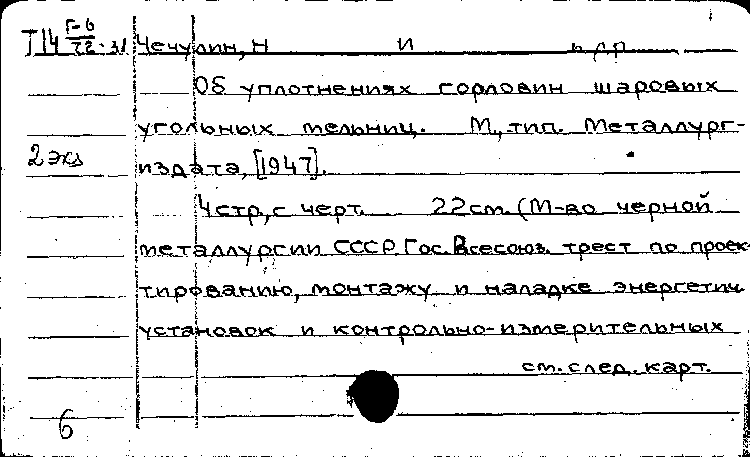 Т14 Г-6/72-31 Чечулин, Н И и др.
Об уплотнениях горловин шаровых
угольных мельниц. М., тип. Металлург-
2 экз издата, [1947].
4 стр., с черт. 22 см. (М-во черной
металлургии СССР. Гос. Всесоюз. трест по проек-
тированию, монтажу и наладке энергетич.
установок и контрольно-измерительных
см. след. карт.
6